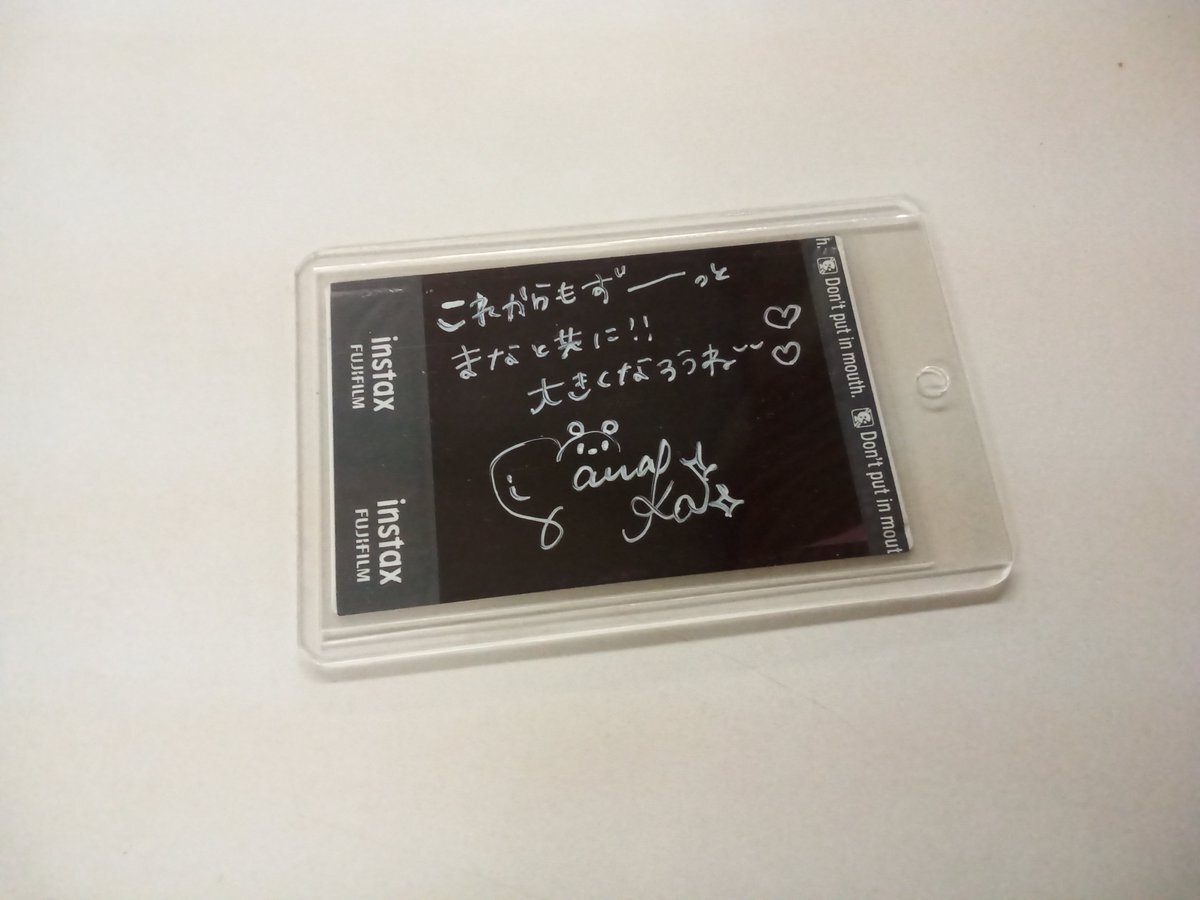 これからもずーっと
まなと共に!!
大きくなろうね
instax
FUJIFILM
instax
FUJIFILM
h.
Don't put in mouth.
Don't put in mout